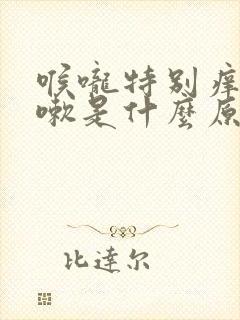 喉嚨特别痒
嗽是什麼原
比達尔